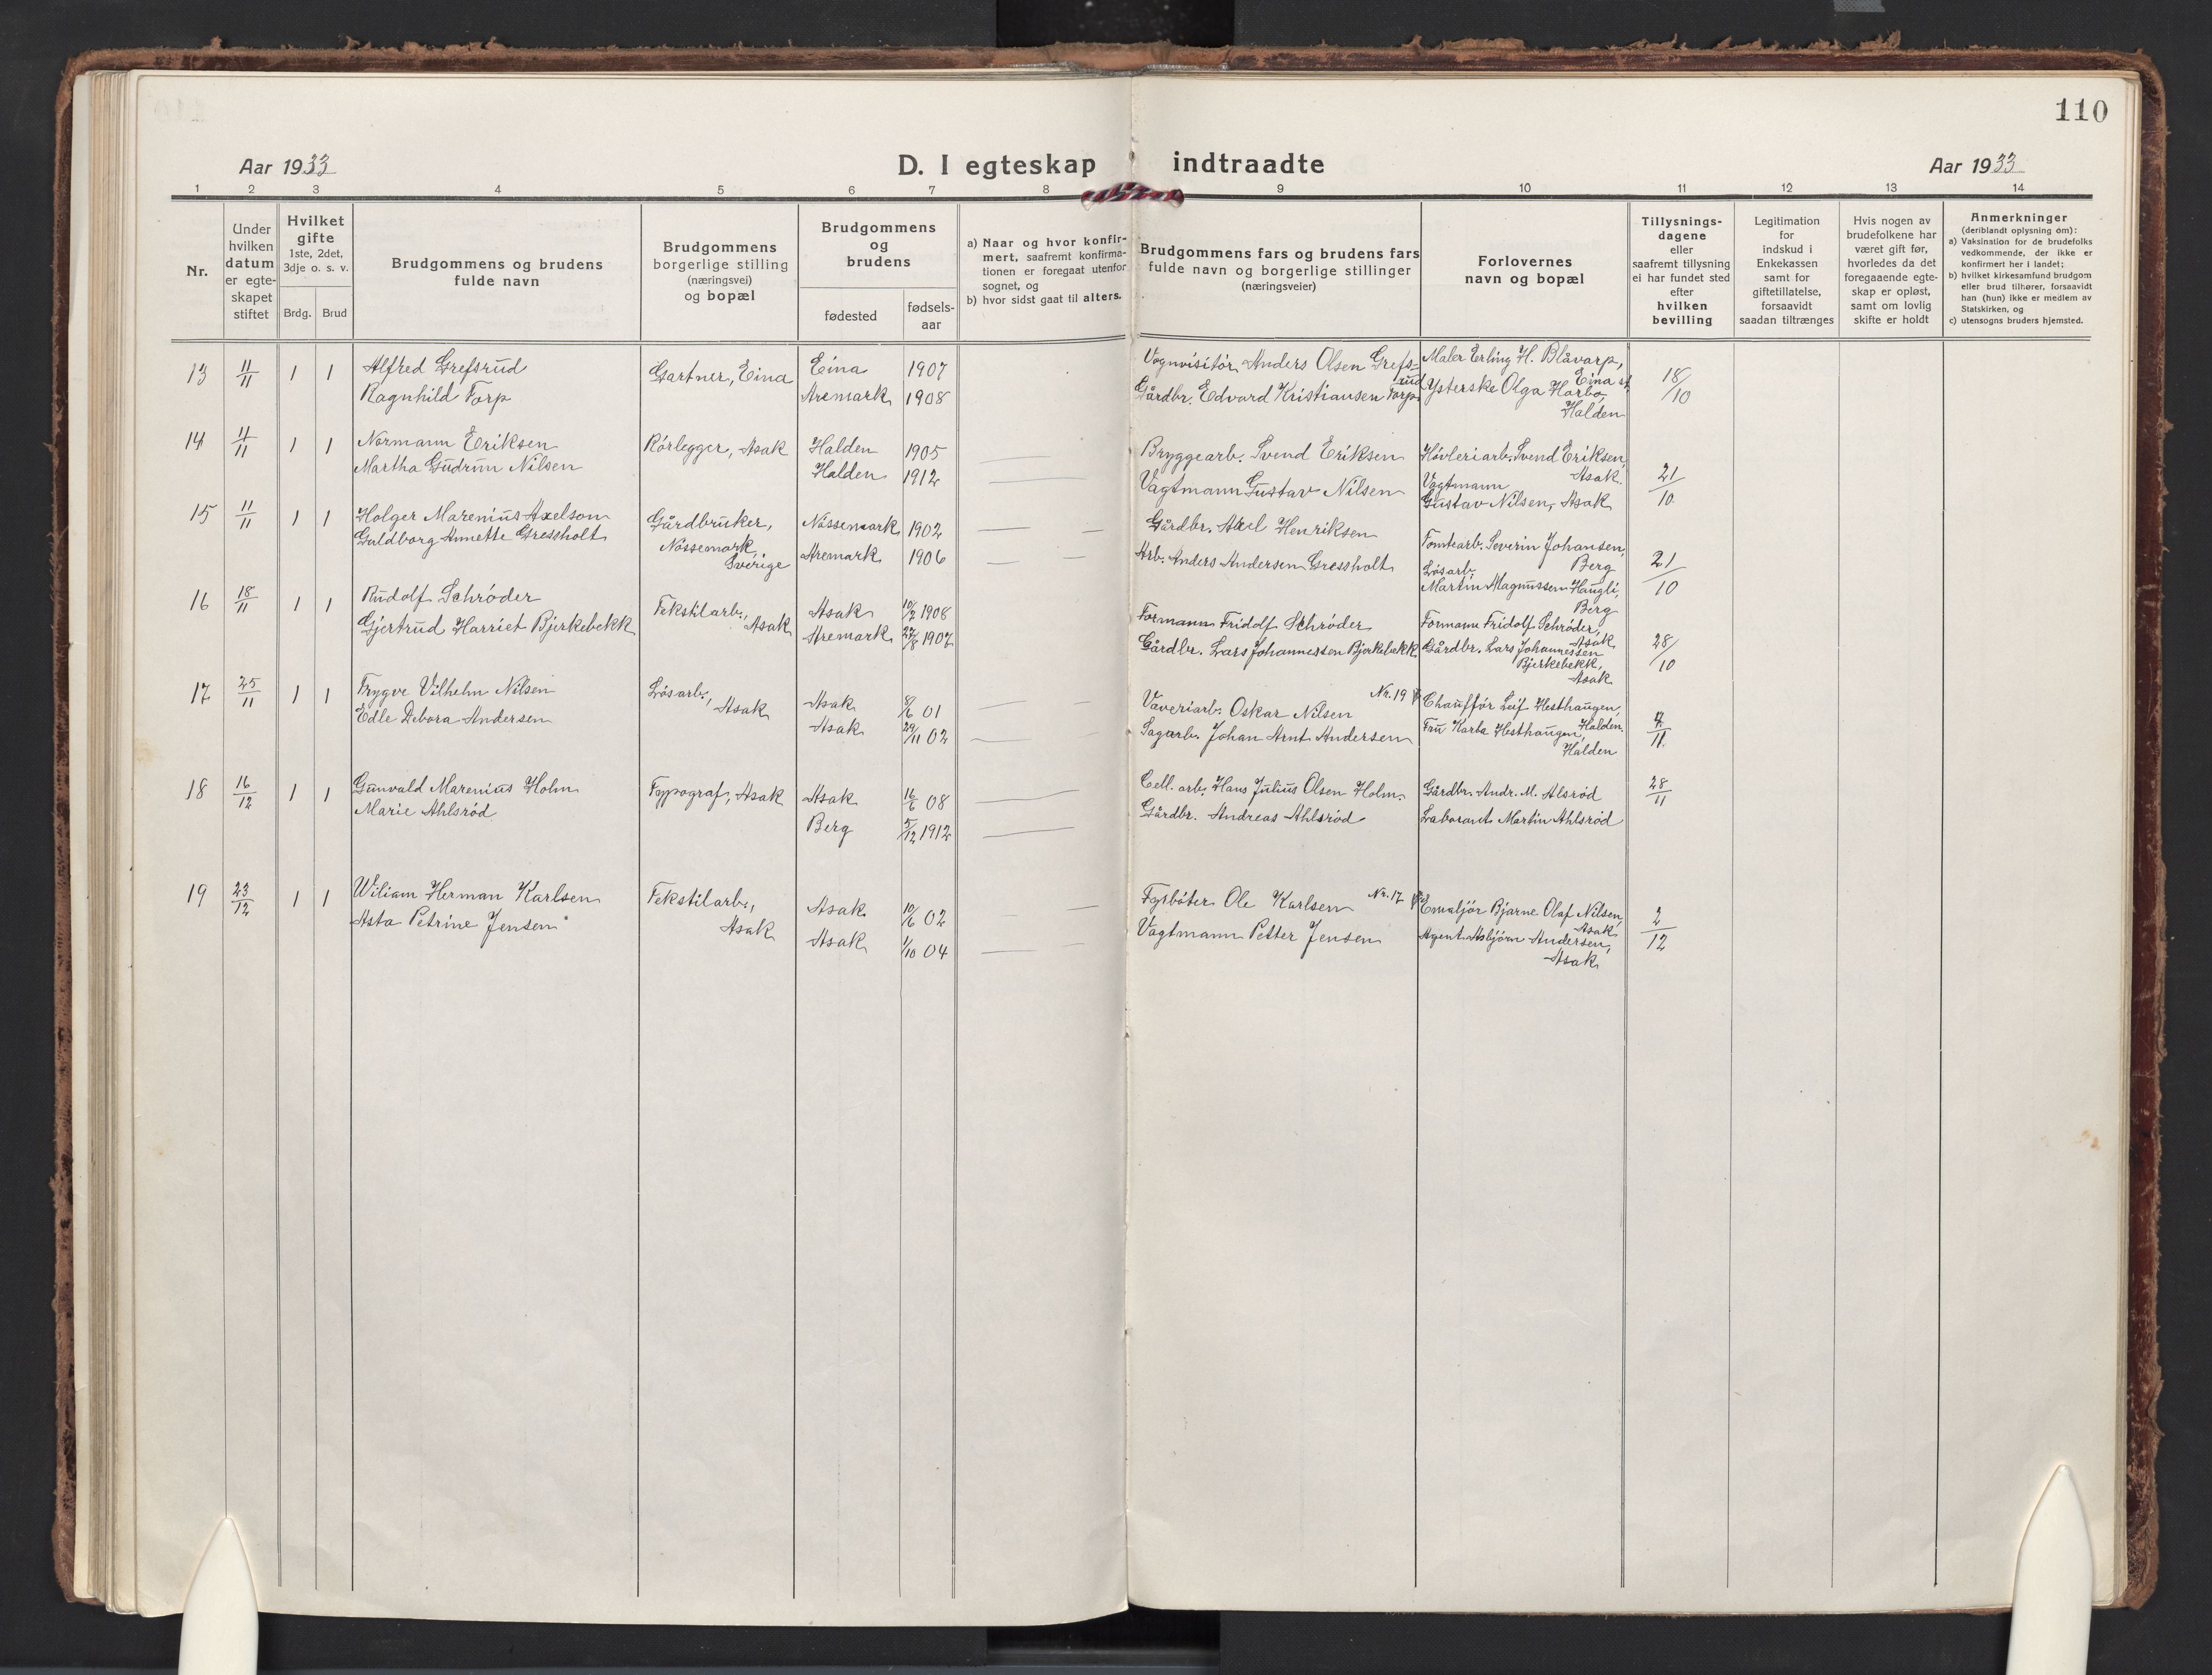 110
Aar 1933
D. I egteskap indtraadte
Aar 1933
1 2 3 4 5 6 7 8 9 10 11 12 13 14
Nr.
Under hvilken datum er egte-
skapet stiftet
Hvilket gifte
1ste, 2det, 3dje o. s. v.
Brdg. Brud
Brudgommens og brudens
fulde navn
Brudgommens
borgerlige stilling
(næringsvei)
og bopæl
Brudgommens
og
brudens
fødested
fødsels-
aar
a) Naar og hvor konfir-
mert, saafremt konfirma-
tionen er foregaat utenfor
sognet, og
b) hvor sidst gaat til alters.
Brudgommens fars og brudens fars
fulde navn og borgerlige stillinger
(næringsveier)
Forlovernes
navn og bopæl
Tillysnings-
dagene
eller
saafremt tillysning
ei har fundet sted
efter
hvilken
bevilling
Legitimation
for
indskud i
Enkekassen
samt for
giftetillatelse,
forsaavidt
saadan tiltrænges
Hvis nogen av
brudefolkene har
været gift før,
hvorledes da det
foregaaende egte-
skap er opløst,
samt om lovlig
skifte er holdt
Anmerkninger
(deriblandt oplysning om):
a) Vaksination for de brudefolks
vedkommende, der ikke er
konfirmert her i landet;
b) hvilket kirkesamfund brudgom
eller brud tilhører, forsaavidt
han (hun) ikke er medlem av
Statskirken, og
c) utensogns bruders hjemsted.
13 11/11 1 1 Alfred Grefsrud
Ragnhild Torp
Gartner, Eina
Eina 1907
Aremark 1908
Vognvisitør Anders Olsen Grefs-
rud
Gårdbr. Edvard Kristiansen Torp
Maler Erling H. Blåvarp,
Eina st.
Ysterske Olga Harbo,
Halden
18/10
14 11/11 1 1 Normann Eriksen
Martha Gudrun Nilsen
Rørlegger, Asak
Halden 1905
Halden 1912
Bryggearb. Svend Eriksen
Vagtmann Gustav Nilsen
Høvleriarb. Svend Eriksen,
Asak.
Vagtmann
Gustav Nilsen, Asak
21/10
15 11/11 1 1 Holger Marenius Axelson
Guldborg Annette Gressholt
Gårdbruker,
Nössemark,
Sverige
Nössemark 1902
Aremark 1906
Gårdbr. Axel Henriksen
Arb. Anders Andersen Gressholt
Tomtearb. Severin Johansen,
Berg
Løsarb.
Martin Magnussen Haugli,
Berg
21/10
16 18/11 1 1 Rudolf Schrøder
Gjertrud Harriet Bjerkebekk
Tekstilarb.,
Asak
Asak 10/2 1908
Aremark 27/8 1907
Formann Fridolf Schrøder
Gårdbr. Lars Johannessen Bjerkebekk
Formann Fridolf Schrøder,
Asak
Gårdbr. Lars Johannessen
Bjerkebekk,
Asak
28/10
17 25/11 1 1 Trygve Vilhelm Nilsen
Edle Debora Andersen
Løsarb.,
Asak
Asak 8/6 01
Asak 29/11 02
Nr. 19
Væveriarb. Oskar Nilsen
Sagarb. Johan Arnt Andersen
Chauffør Leif Hesthaugen,
Halden.
Fru Karba Hesthaugen,
Halden
4/11.
18 16/12 1 1 Gunvald Marenius Holm
Marie Ahlsrød
Typograf, Asak
Asak 16/6 08
Berg 5/12 1912
Cell. arb. Hans Julius Olsen Holm.
Gårdbr. Andreas Ahlsrød
Gårdbr. Andr. M. Alsrød
Laborant Martin Ahlsrød
28/11
19 23/12 1 1 Wiliam Herman Karlsen
Asta Petrine Jensen
Tekstilarb.,
Asak
Asak 10/6 02
Asak 1/10 04
Nr. 17
Tøjsbøter Ole Karlsen
Vagtmann Petter Jensen
Emaljør Bjarne Olaf Nilsen,
Asak
Agent Asbjørn Andersen,
Asak
2/12